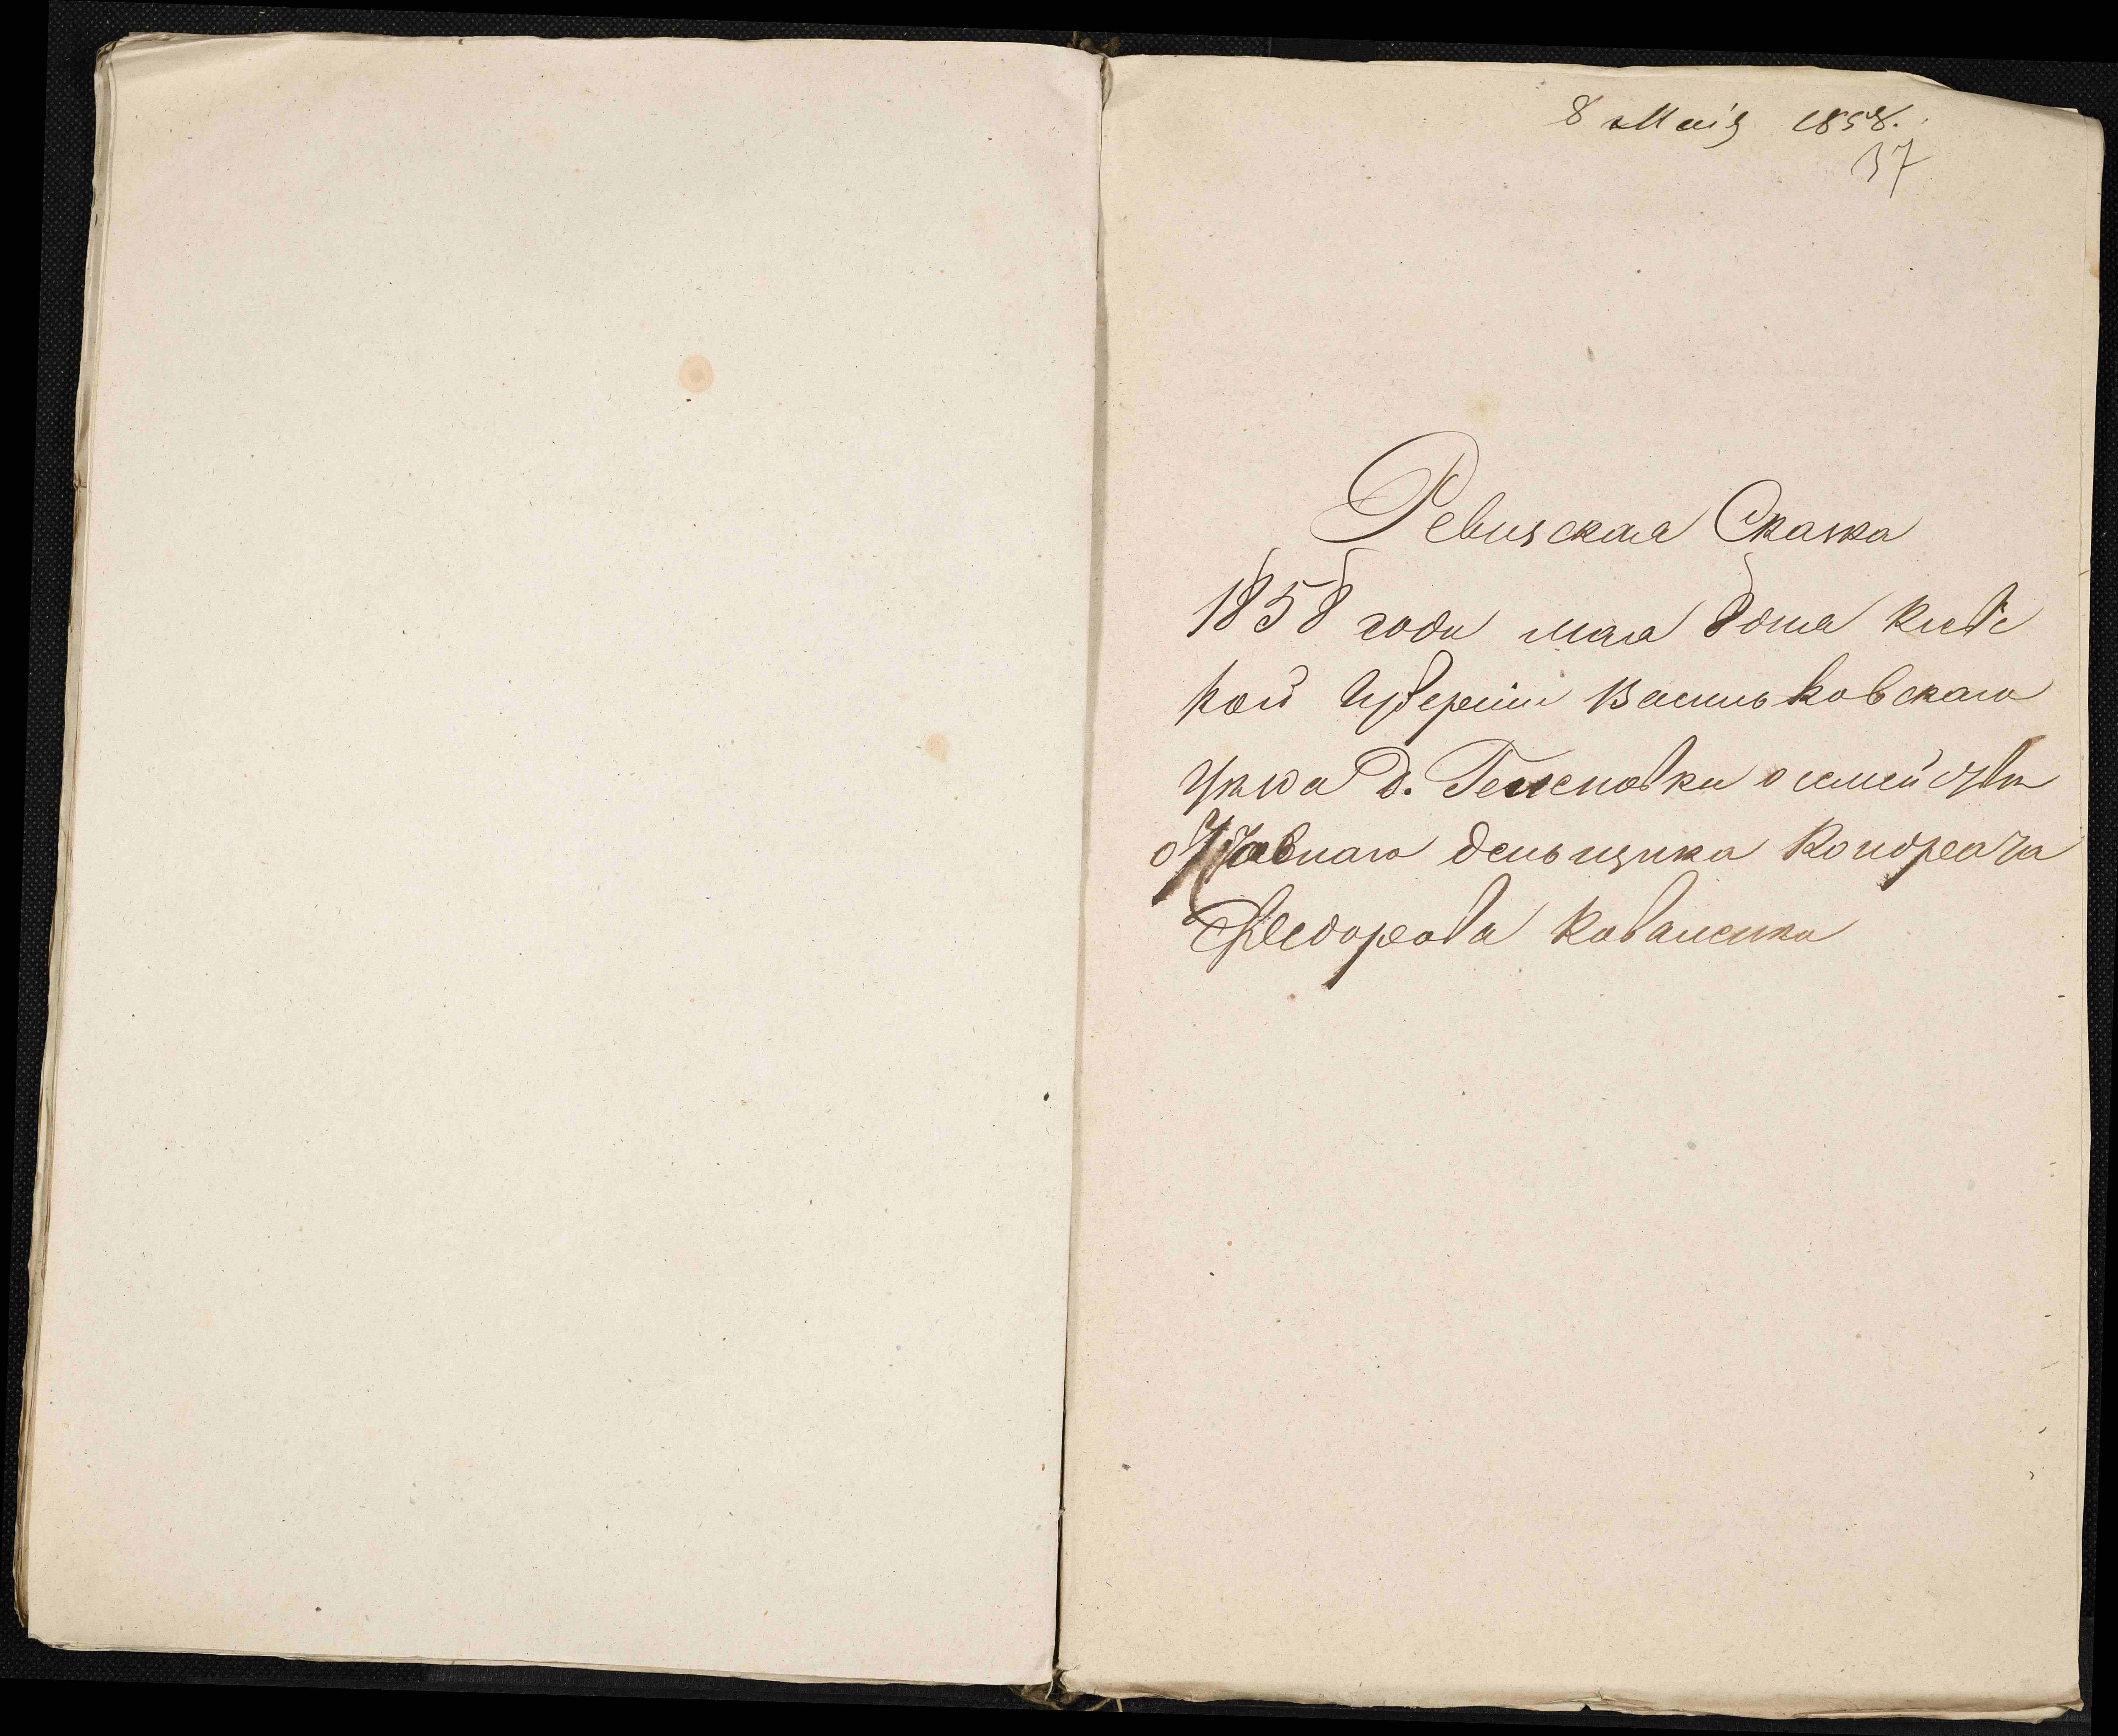 8 Маія 1858.
37
Ревизская Сказка
1858 года мая 8 дня Кіевс
кой Губерніи Васильковскаго
уѣзда д. Гелсновки о семействѣ
денщика Кондрата
Федорова Коваленка